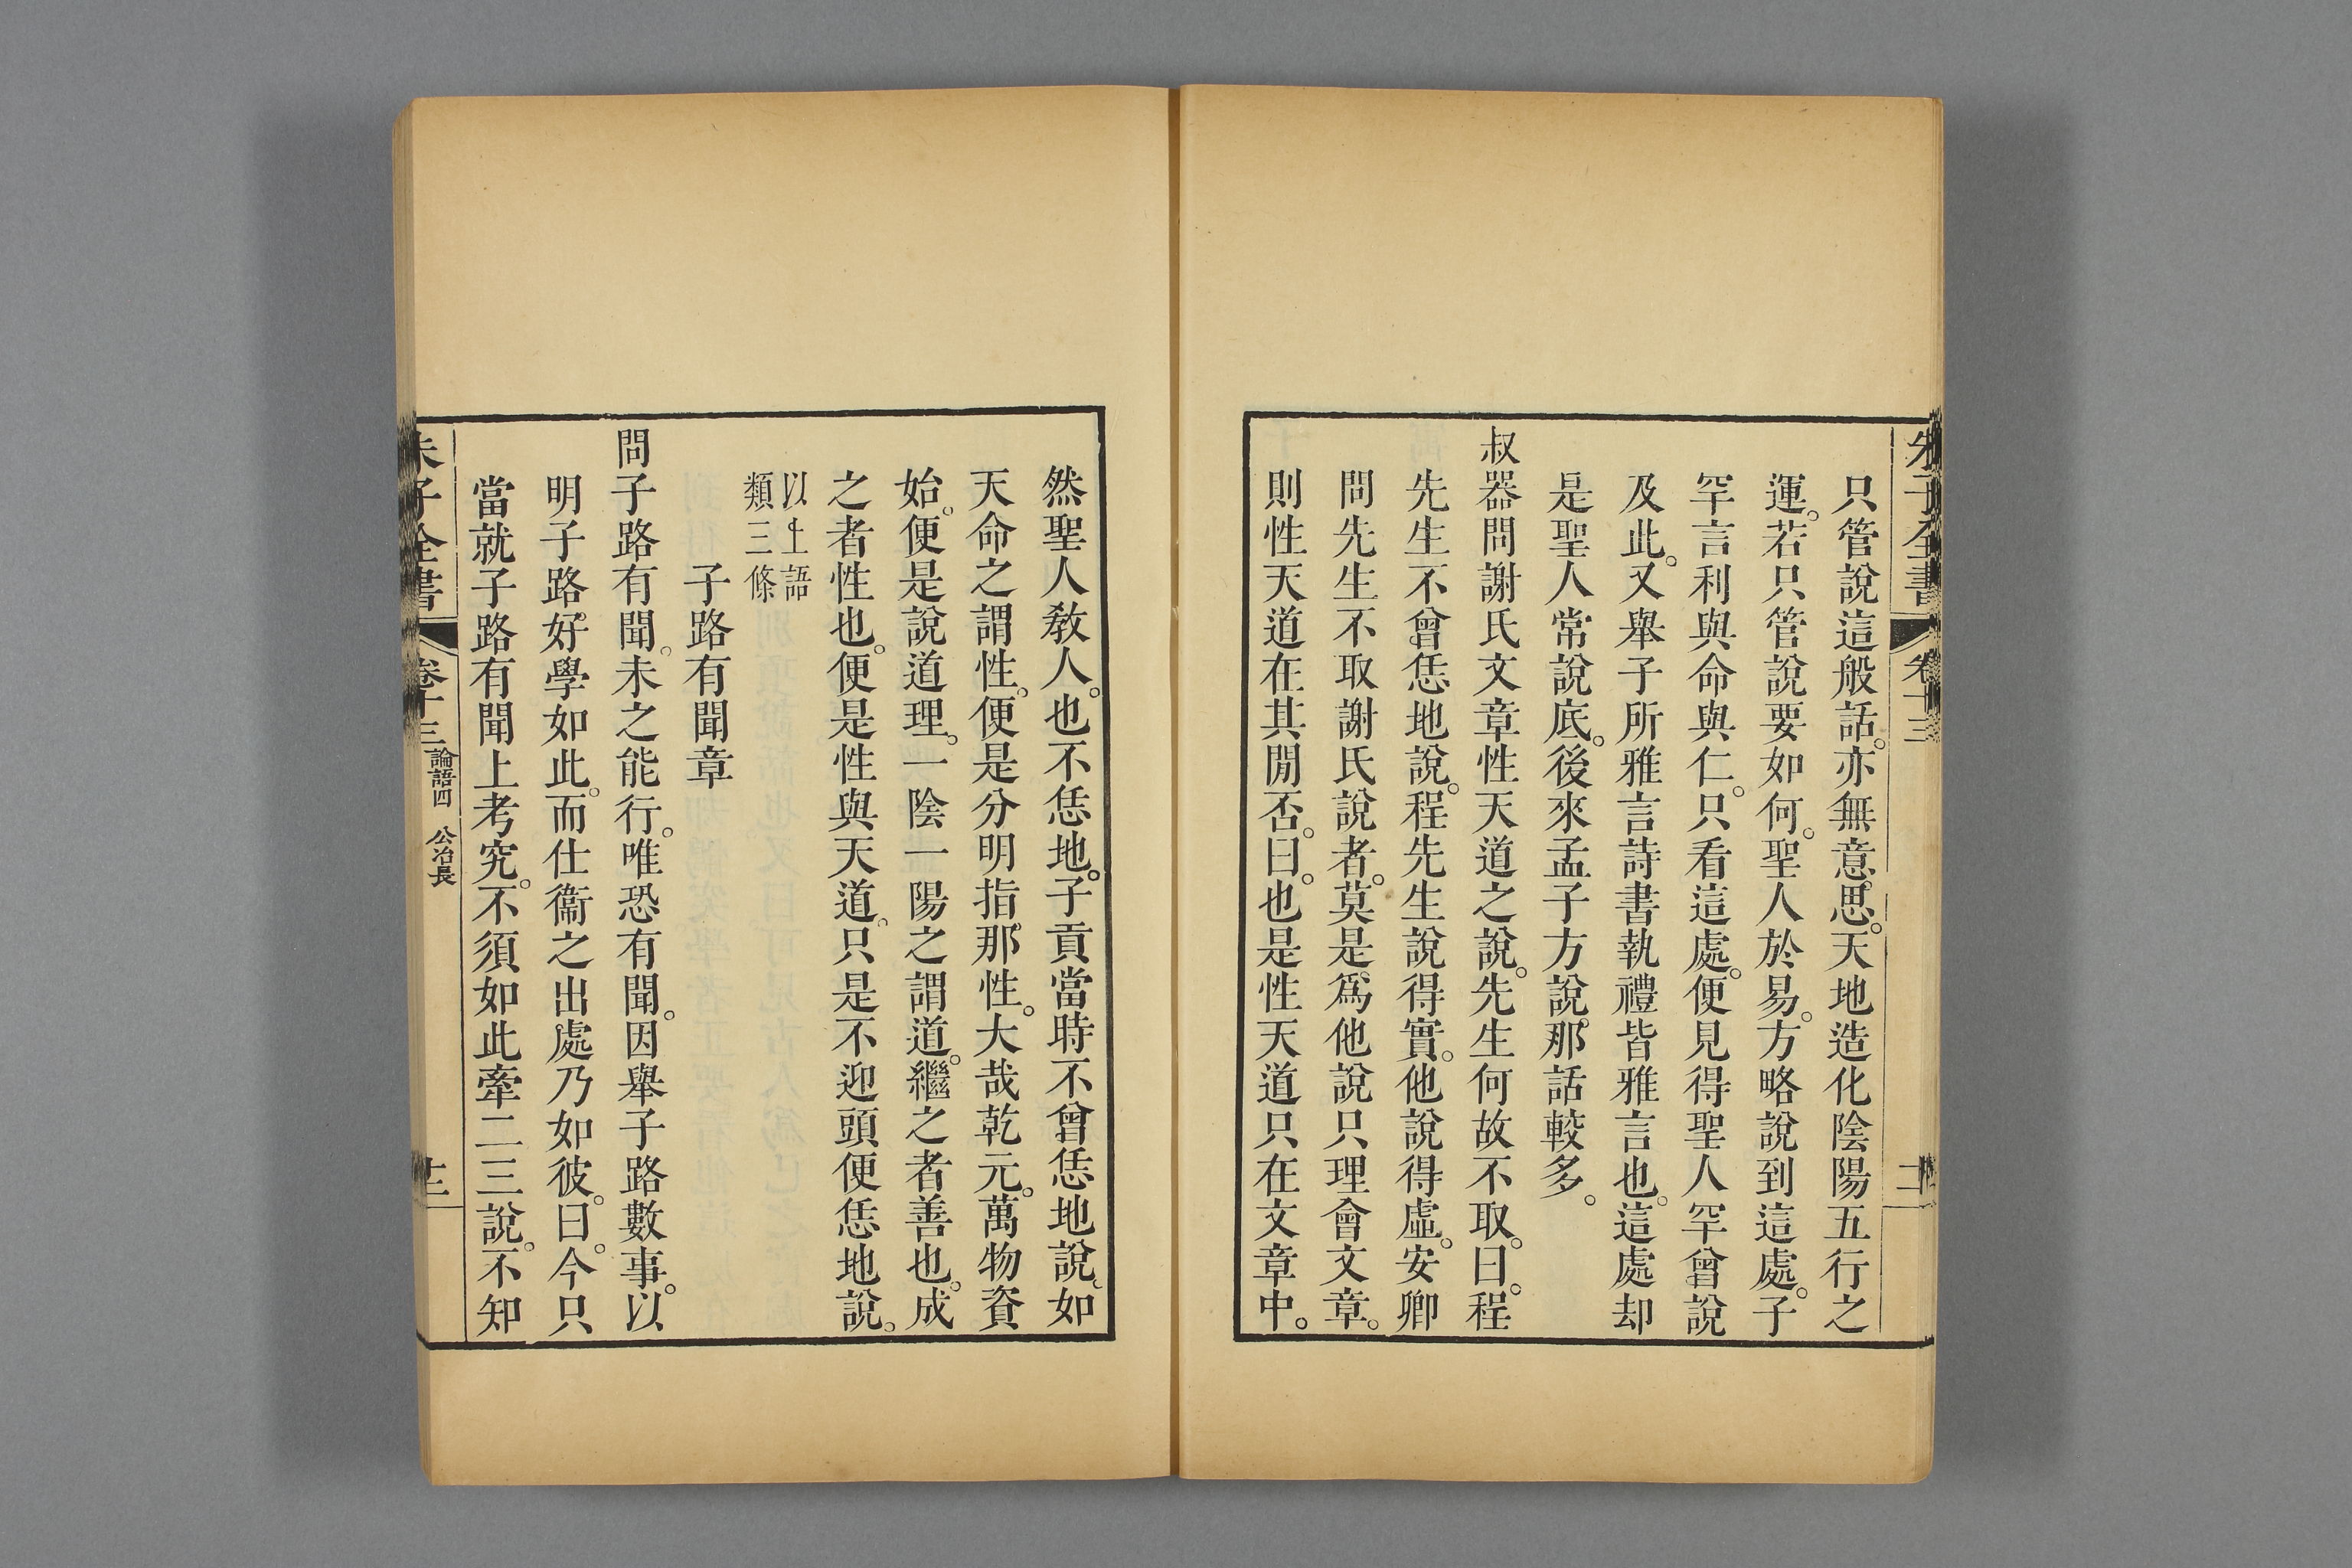 朱子全書 卷十三
只管說這般話。亦無意思。天地造化陰陽五行之
運。若只管說要如何。聖人於易。方略說到這處。子
罕言利與命與仁。只看這處。便見得聖人罕曾說
及此。又舉子所雅言詩書執禮皆雅言也。這處却
是聖人常說底。後來孟子方說。那話較多。
叔器問謝氏文章性天道之說。先生何故不取。曰。程
先生不曾恁地說。程先生說得實。他說得虛。安卿
問先生不取謝氏說者。莫是爲他說只理會文章。
則性天道在其閒否。曰。也是性天道只在文章中。
然聖人敎人。也不恁地。子貢當時不曾恁地說。如
天命之謂性。便是分明指那性。大哉乾元。萬物資
始。便是說道理。一陰一陽之謂道。繼之者善也。成
之者性也。便是性與天道。只是不迎頭便恁地說。
以上語
類三條
子路有聞章
問子路有聞。未之能行。唯恐有聞。因舉子路數事。以
明子路好學如此。而仕衞之出處乃如彼。曰。今只
當就子路有聞上考究。不須如此牽二三說。不知
朱子全書 卷十三 論語四 公冶長